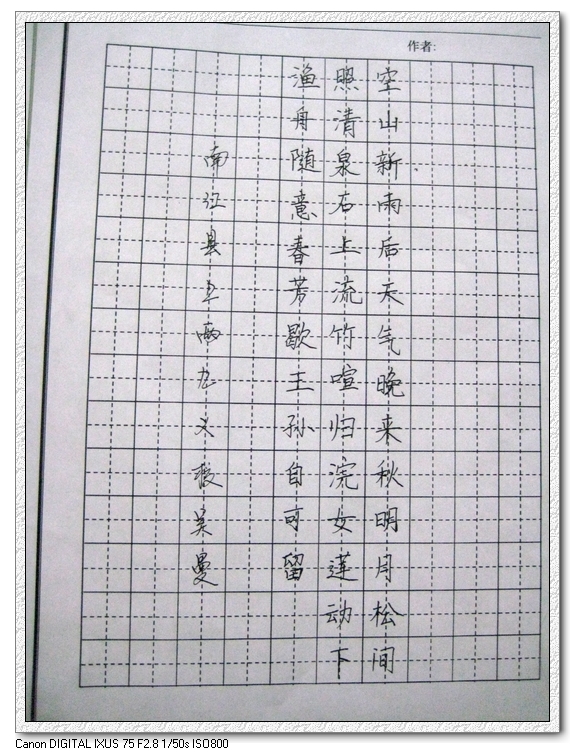 作者:
空山新雨后天气晚来秋明月松间
照清泉石上流竹喧归浣女莲动下
渔舟随意春芳歇王孙自可留
南江县上两九义校吴曼
Canon DIGITAL IXUS 75 F2.8 1/50s ISO800